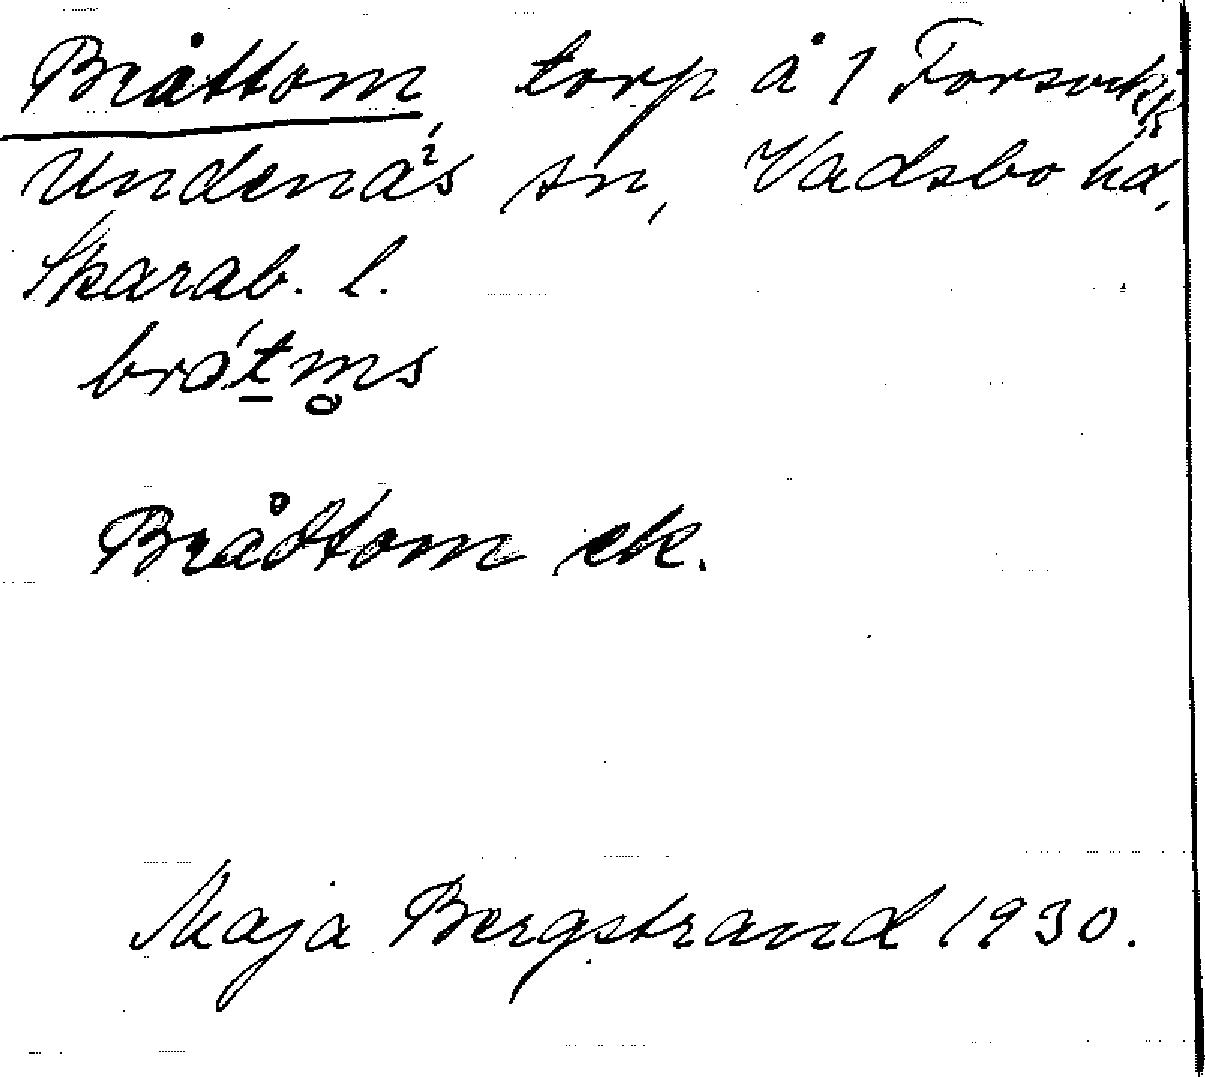 Bråttom, torp å 1 Forsvik
Undenäs sn, Vadsbo hd,
Skarab. l.
bråtms
Brådtom ek.
Maja Bergstrand 1930.